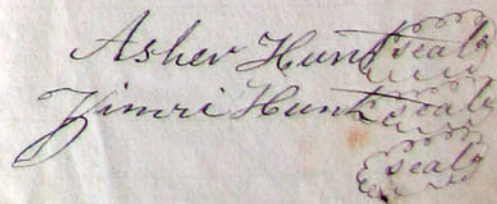 Asher Hunt seal
Zimri Hunt seal
seal